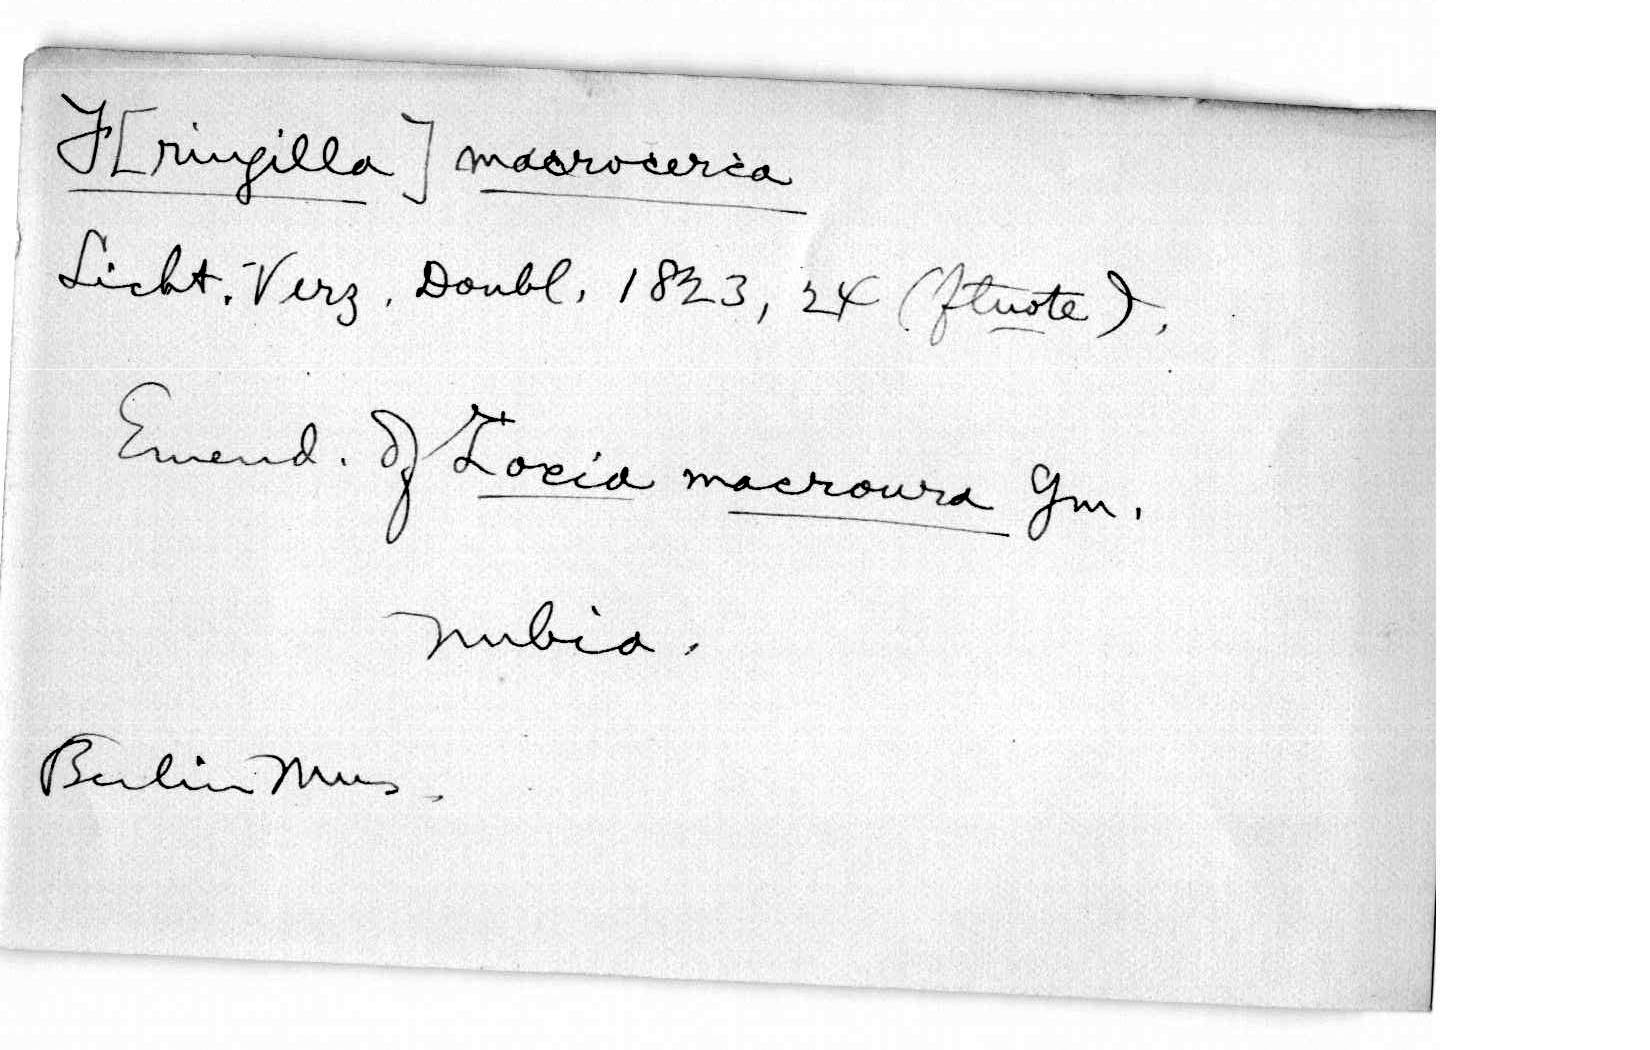 F[ringilla] macrocerca
Licht. Verz. Doubl. 1823, 24 (ftnote).
Emend. of Loxia macroura Gm.
Nubia.
Berlin Mus.